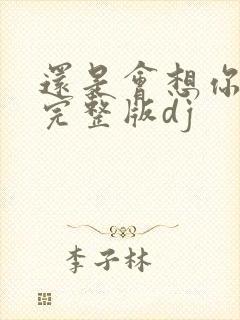 還是會想你
完整版dj
李子林